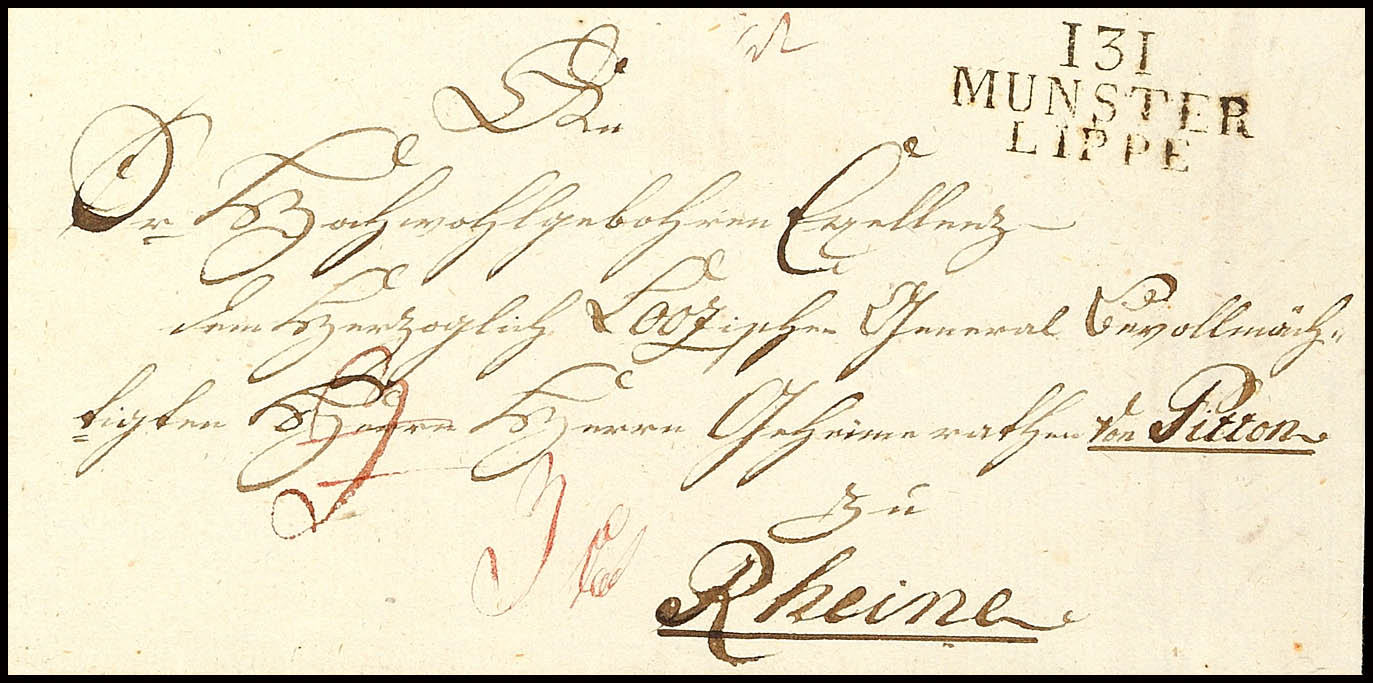 131
MUNSTER
LIPPE
An
Sr Hochwohlgebohren Excellenz
dem Herzoglich Loozischen General Bevollmäch-
tigten Herrn Herrn Geheimerathen von Pitton
zu
Rheine